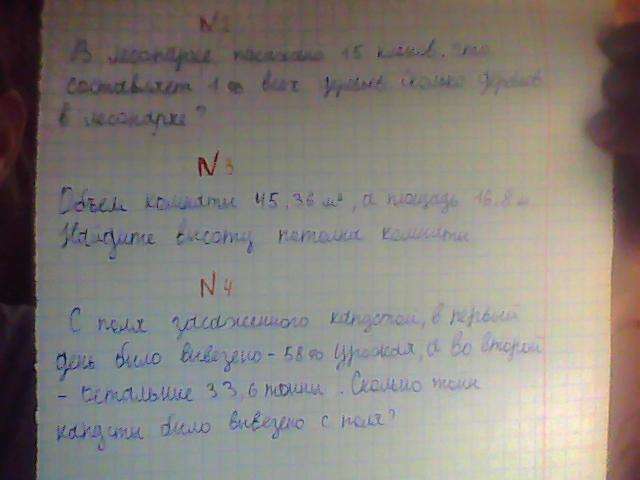 N2
В лесопарке посажено 15 кленов. Это
составляет 1% всех деревьев сколько деревьев
в лесопарке?
N3
Объем комнаты 45,36 м³, а площадь 16,8 м.
Найдите высоту потолка комнаты
N4
С поля засаженного капустой, в первый
день было вывезено - 58% урожая, а во второй
- остальные 33,6 тонны. Сколько тонн
капусты было вывезено с поля?